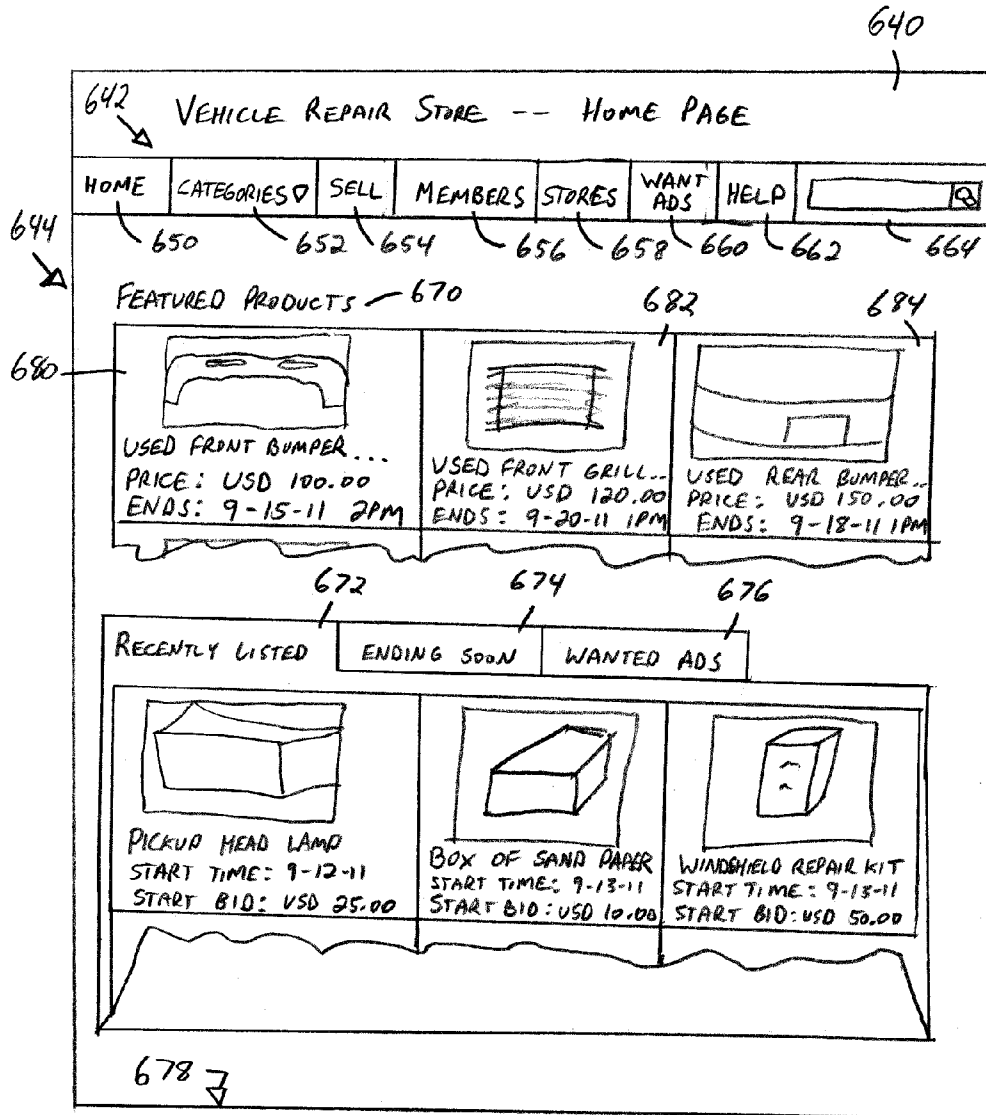 640
642
VEHICLE REPAIR STORE -- HOME PAGE
HOME
CATEGORIES
SELL
MEMBERS
STORES
WANT ADS
HELP
644
650
652
654
656
658
660
662
664
FEATURED PRODUCTS
670
682
684
680
USED FRONT BUMPER...
PRICE: USD 100.00
ENDS: 9-15-11 2PM
USED FRONT GRILL..
PRICE: USD 120.00
ENDS: 9-20-11 1PM
USED REAR BUMPER..
PRICE: USD 150.00
ENDS: 9-18-11 1PM
672
674
676
RECENTLY LISTED
ENDING SOON
WANTED ADS
PICKUP HEAD LAMP
START TIME: 9-12-11
START BID: USD 25.00
BOX OF SAND PAPER
START TIME: 9-13-11
START BID: USD 10.00
WINDSHIELD REPAIR KIT
START TIME: 9-13-11
START BID: USD 50.00
678